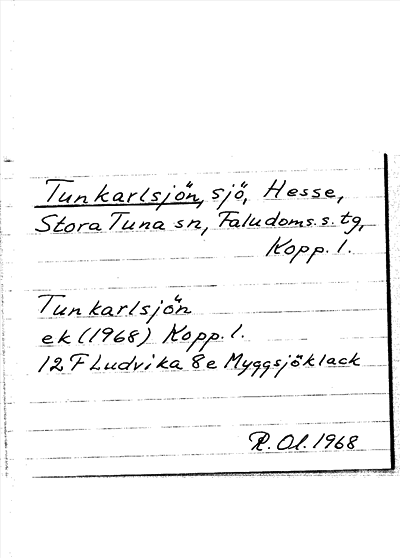 Tunkarlsjön, sjö, Hesse,
Stora Tuna sn, Faludoms.s. tg,
Kopp. l.
Tunkarlsjön
ek (1968) Kopp. l.
12 F Ludvika 8e Myggsjöklack
R. Ol. 1968